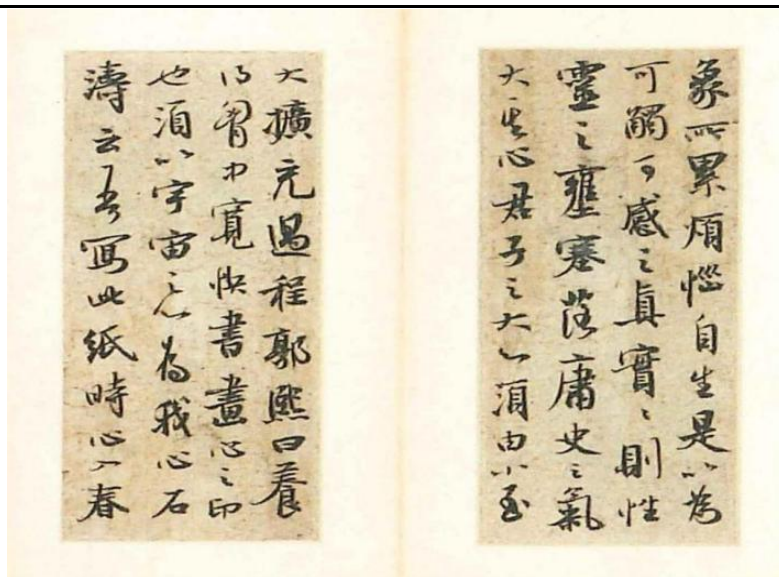 象所累煩惱自生是以為
可觸可感之眞實〻則性
靈之壅塞落庸史之氣
大其心君子之大心須由小至
大擴充過程郭熙曰養
得胷中寬快書畫心之印
也須以宇宙之心為我心石
濤云吾寫此紙時心入春